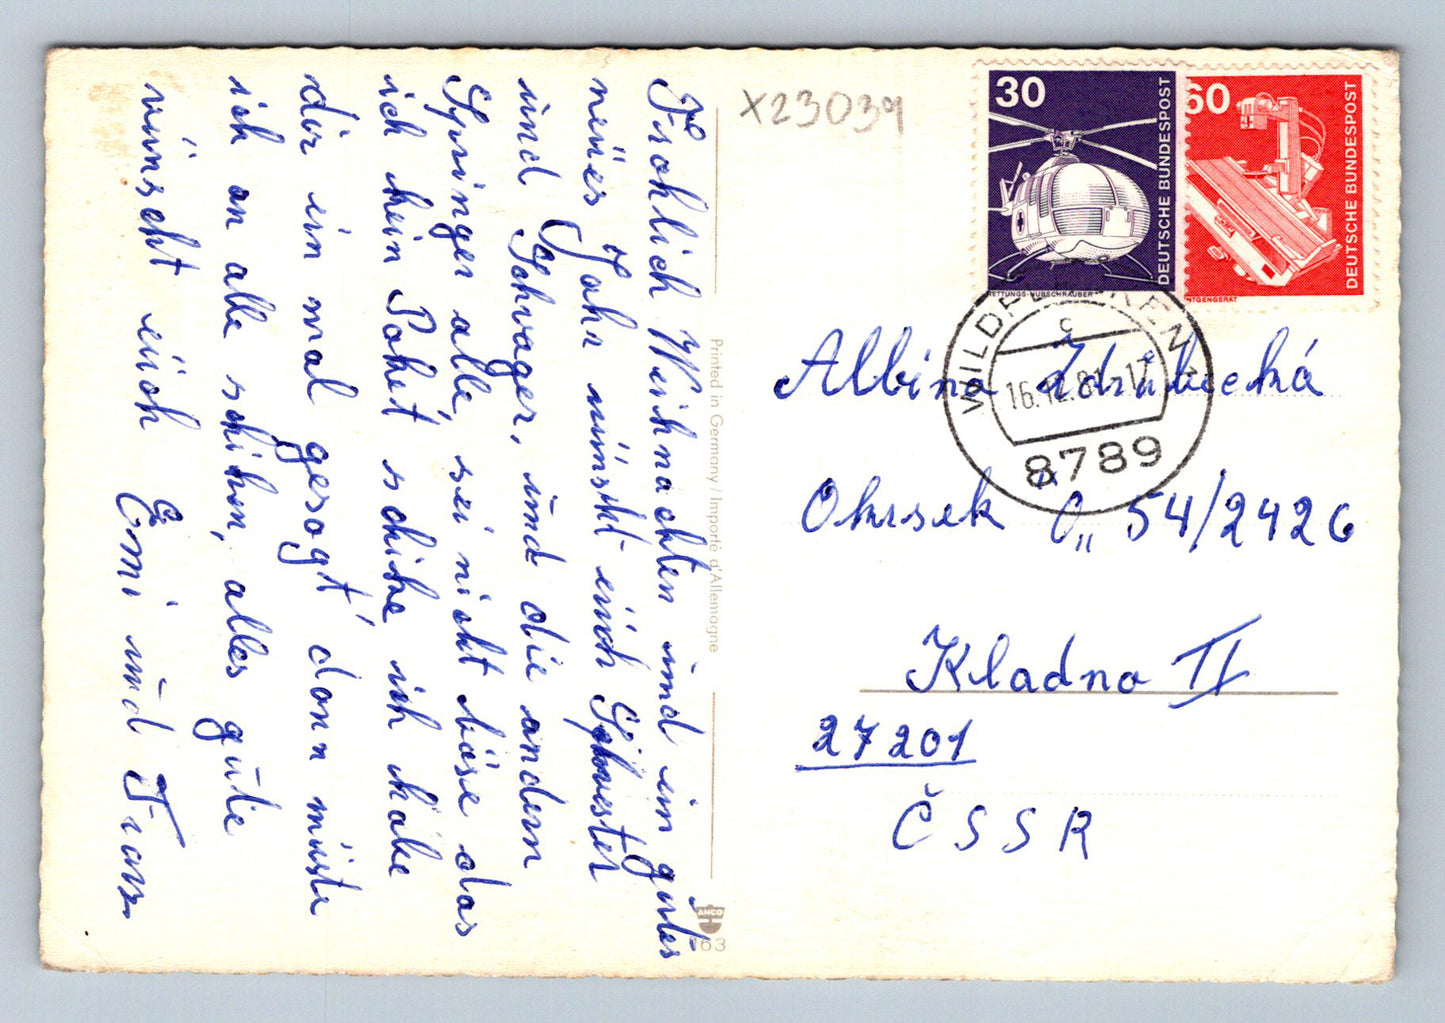 Frohlich Weihnachten und ein gutes
neües Jahr wünscht eüch Schwester
und Schwager, und die andern
Springer alle, sei nicht böse das
ich kein Paket schike ich habe
dir ein mal gesagt dann müste
ich an alle schiken, alles gute
wünscht eüch Erni und Franz
X23039
30
DEUTSCHE BUNDESPOST
RETTUNGS-HUBSCHRAUBER
60
DEUTSCHE BUNDESPOST
NTGENGERÄT
WILDFLECKEN 1
c
16.12.81-17
8789
Albina
Okrsek 0,, 54/2426
Kladno II
27201
ČSSR
Printed in Germany / Importé d'Allemagne
ANCO
163